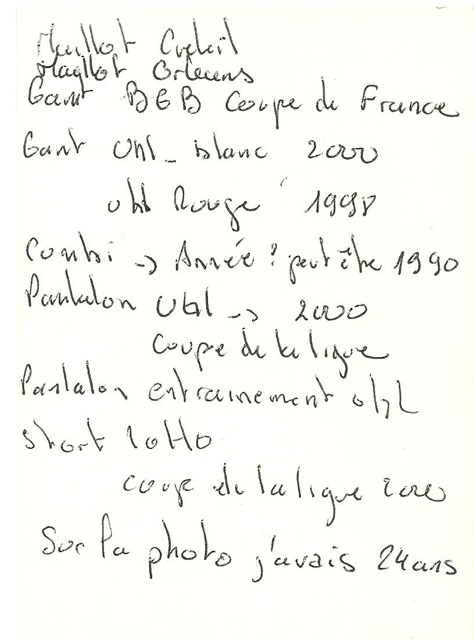 Maillot Creteil
Mayllot Orleans
Gant BGB Coupe de France
Gant Uhl - blanc 2000
uhl Rouge 1998
Combi -> Année ? peut être 1990
Pantalon Uhl -> 2000
Coupe de la ligue
Pantalon entrainement uhl
short lotto
coupe de la ligue 2000
Sur la photo j'avais 24 ans